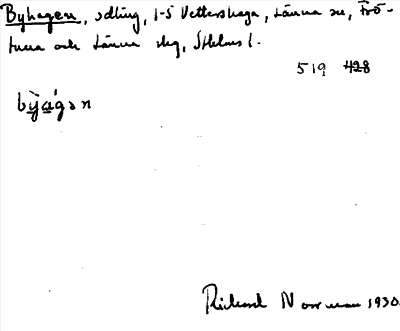 Byhagen, odling, 1-5 Vettershaga, Länna sn, Frö-
tuna och Länna skg, Sthlms l.
519 428
bỳagən
Rickard Norrman 1930.